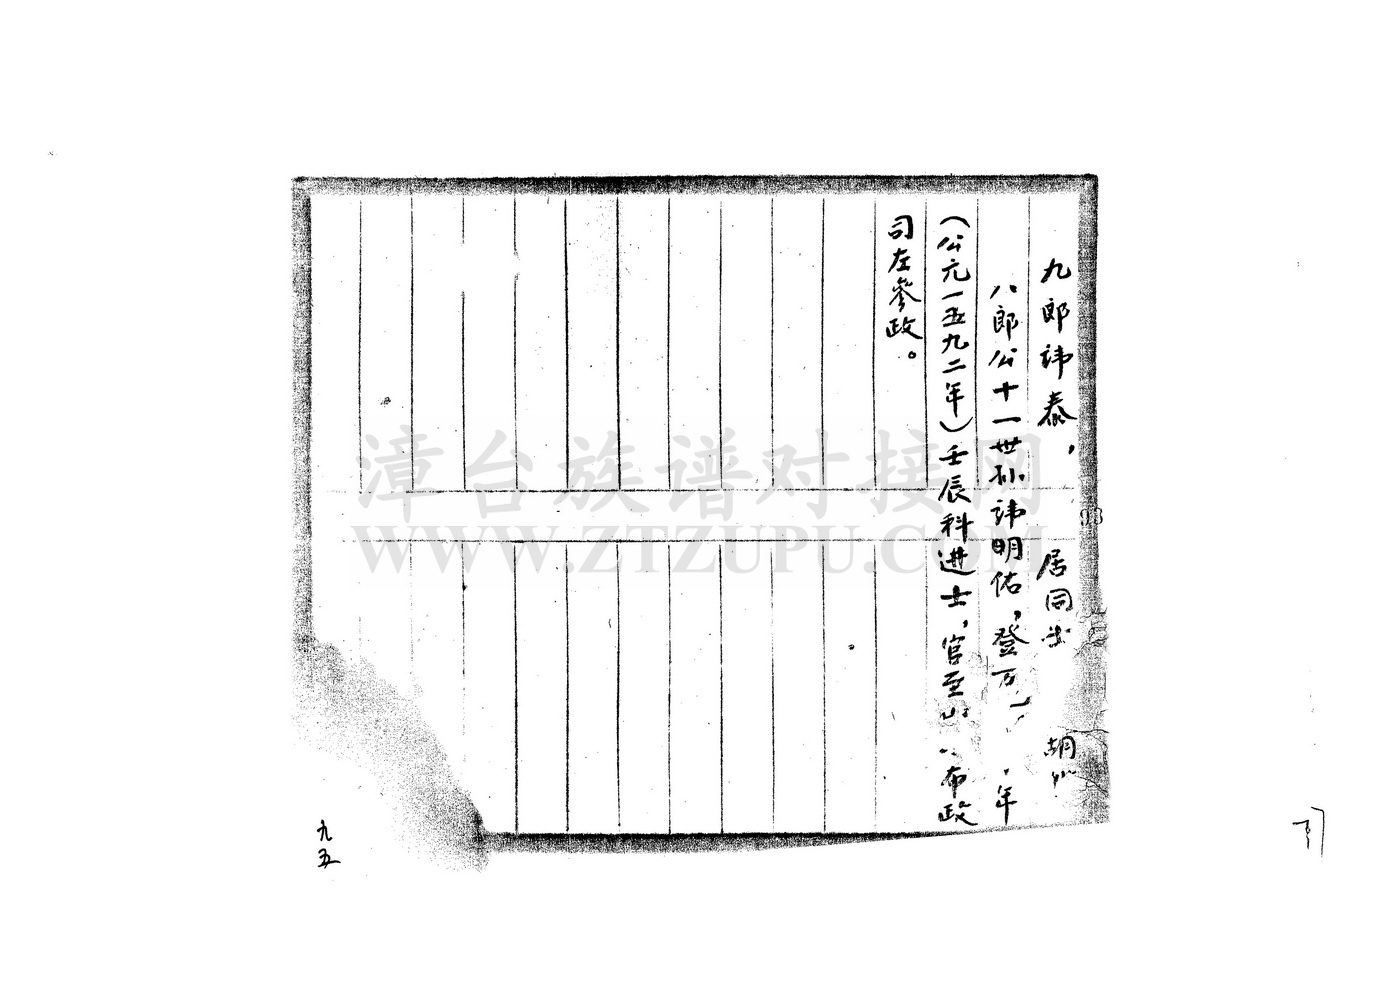 九郎讳泰， 居同 胡
八郎公十一世孙讳明佑，登万 年
(公元一五九二年)壬辰科进士，官至山 布政
司左参政。
九五
93
漳台族谱对接网
WWW.ZTZUPU.COM